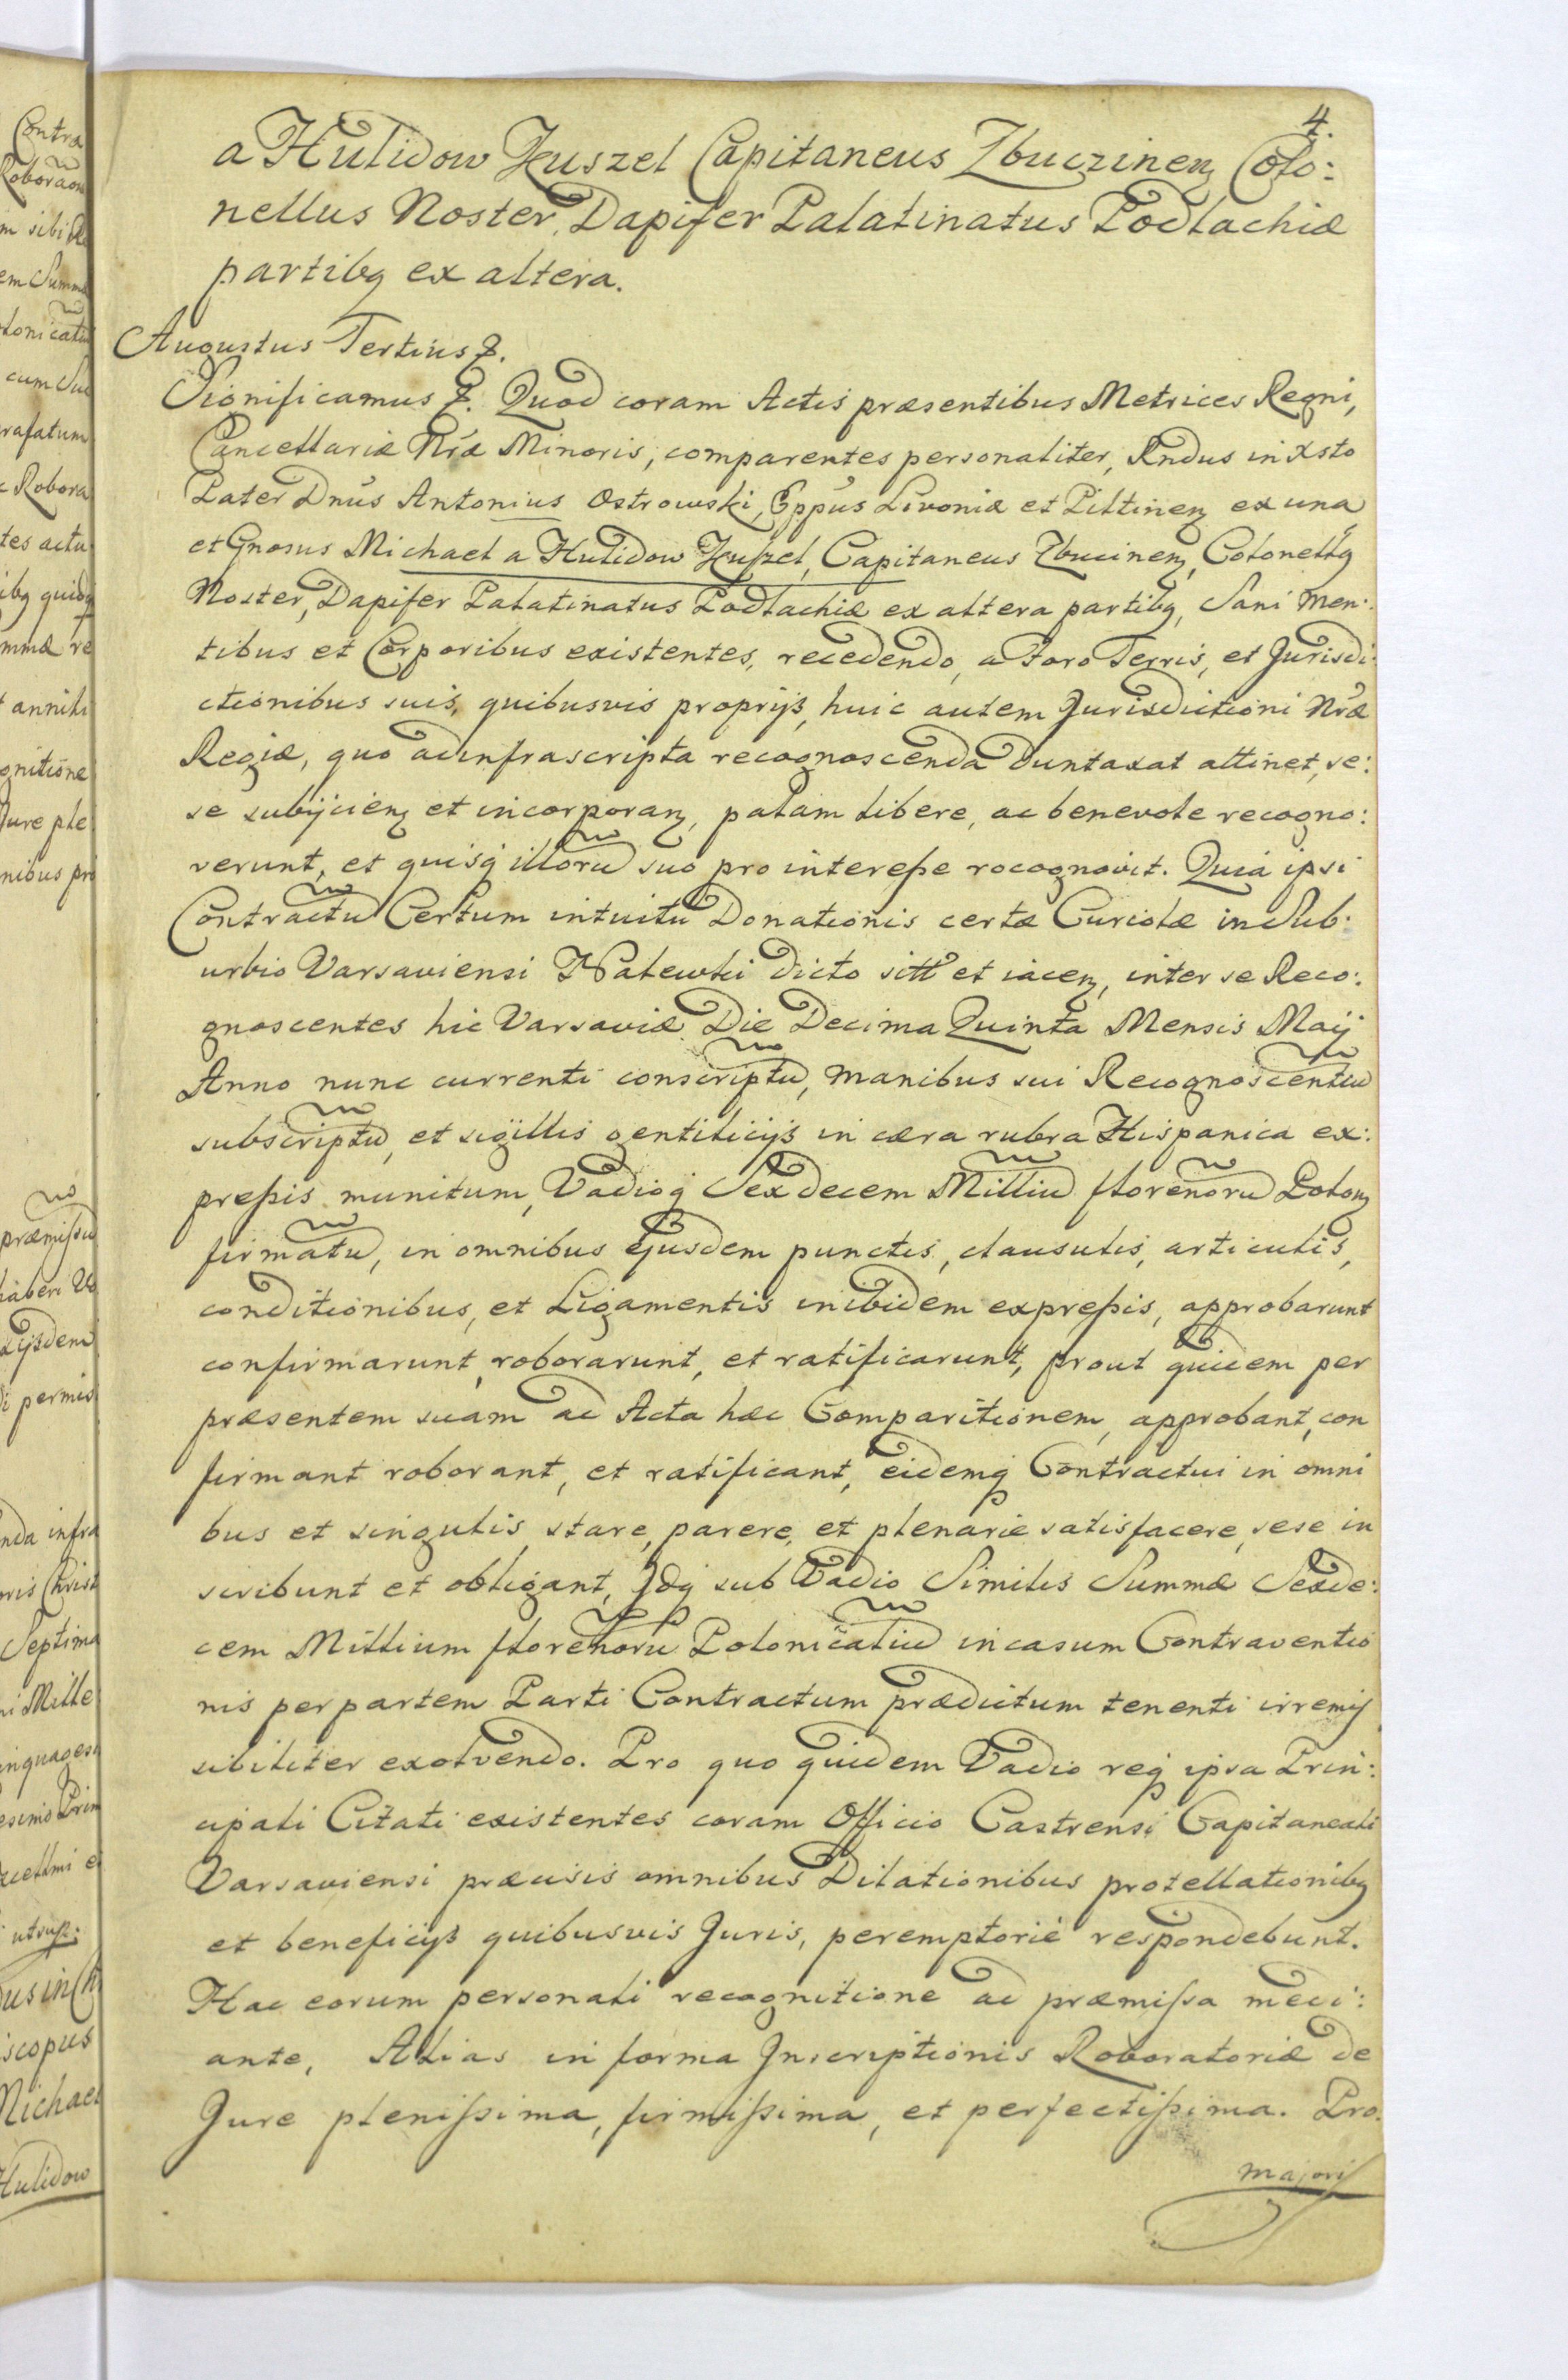 4.
a Hulidow Kuszel Capitaneus Zbuczinen̄ Colo:
nellus Noster, Dapifer Palatinatus Podlachiæ
partibq ex altera.
Augustus Tertius &.
Significamus &. Quod coram Actis præsentibus Metrices Regni,
Cancellariæ Nræ Minoris, comparentes personaliter, Rndus in Xsto
Pater Dnus Antonius Ostrowski, Eppus Livoniæ et Piltinen̄ ex una
et Gnosus Michael a Hulidow Kuszel, Capitaneus Zbucinen̄, Colonellq
Noster, Dapifer Palatinatus Podlachiæ ex altera partibq, Sani men:
tibus et Corporibus existentes, recedendo, a Foro Terris, et Jurisdi:
ctionibus suis, quibusvis proprijs, huic autem Jurisdictioni Nræ
Regiæ, quo ad infrascripta recognoscenda duntaxat attinet, se:
se subijcien̄ et incorporan̄, palam libere, ac benevole recogno:
verunt, et quisq illorū suo pro interesse rocognovit. Quia ipsi
Contractū Certum intuitu Donationis certæ Curiolæ in Sub:
urbio Varsaviensi Nalewki dicto sitt et iacen̄, inter se Reco:
gnoscentes hic Varsaviæ Die Decima Quinta Mensis Maij
Anno nunc currenti conscriptū, manibus sui Recognoscentiū
subscriptū, et sigillis gentilicijs in cæra rubra Hispanica ex:
pressis munitum, Vadioq Sexdecem Milliū florenorū Polon̄
firmatū, in omnibus ejusdem punctis, clausulis, articulis,
conditionibus, et Ligamentis inibidem expressis, approbarunt
confirmarunt, roborarunt, et ratificarunt, prout quidem per
præsentem suam ad Acta hæc Comparitionem, approbant, con
firmant roborant, et ratificant, eidemq Contractui in omni
bus et singulis, stare, parere, et plenarie satisfacere, sese in
scribunt et obligant, Idq sub Vadio Similis Summæ Sexde:
cem Millium florenorū Polonicaliū in casum Contraventio
nis per partem Parti Contractum prædictum tenenti irremis
sibiliter exolvendo. Pro quo quidem Vadio req ipsa Prin:
cipali Citati existentes coram Officio Castrensi Capitaneali
Varsaviensi præcisis omnibus Dilationibus protellationibq
et beneficijs quibusvis Juris, peremptorie respondebunt.
Hac eorum personali recognitione ad præmissa medi:
ante, Alias in forma Inscriptionis Roboratoriæ de
Jure plenissima, firmissima, et perfectissima. Pro
majori